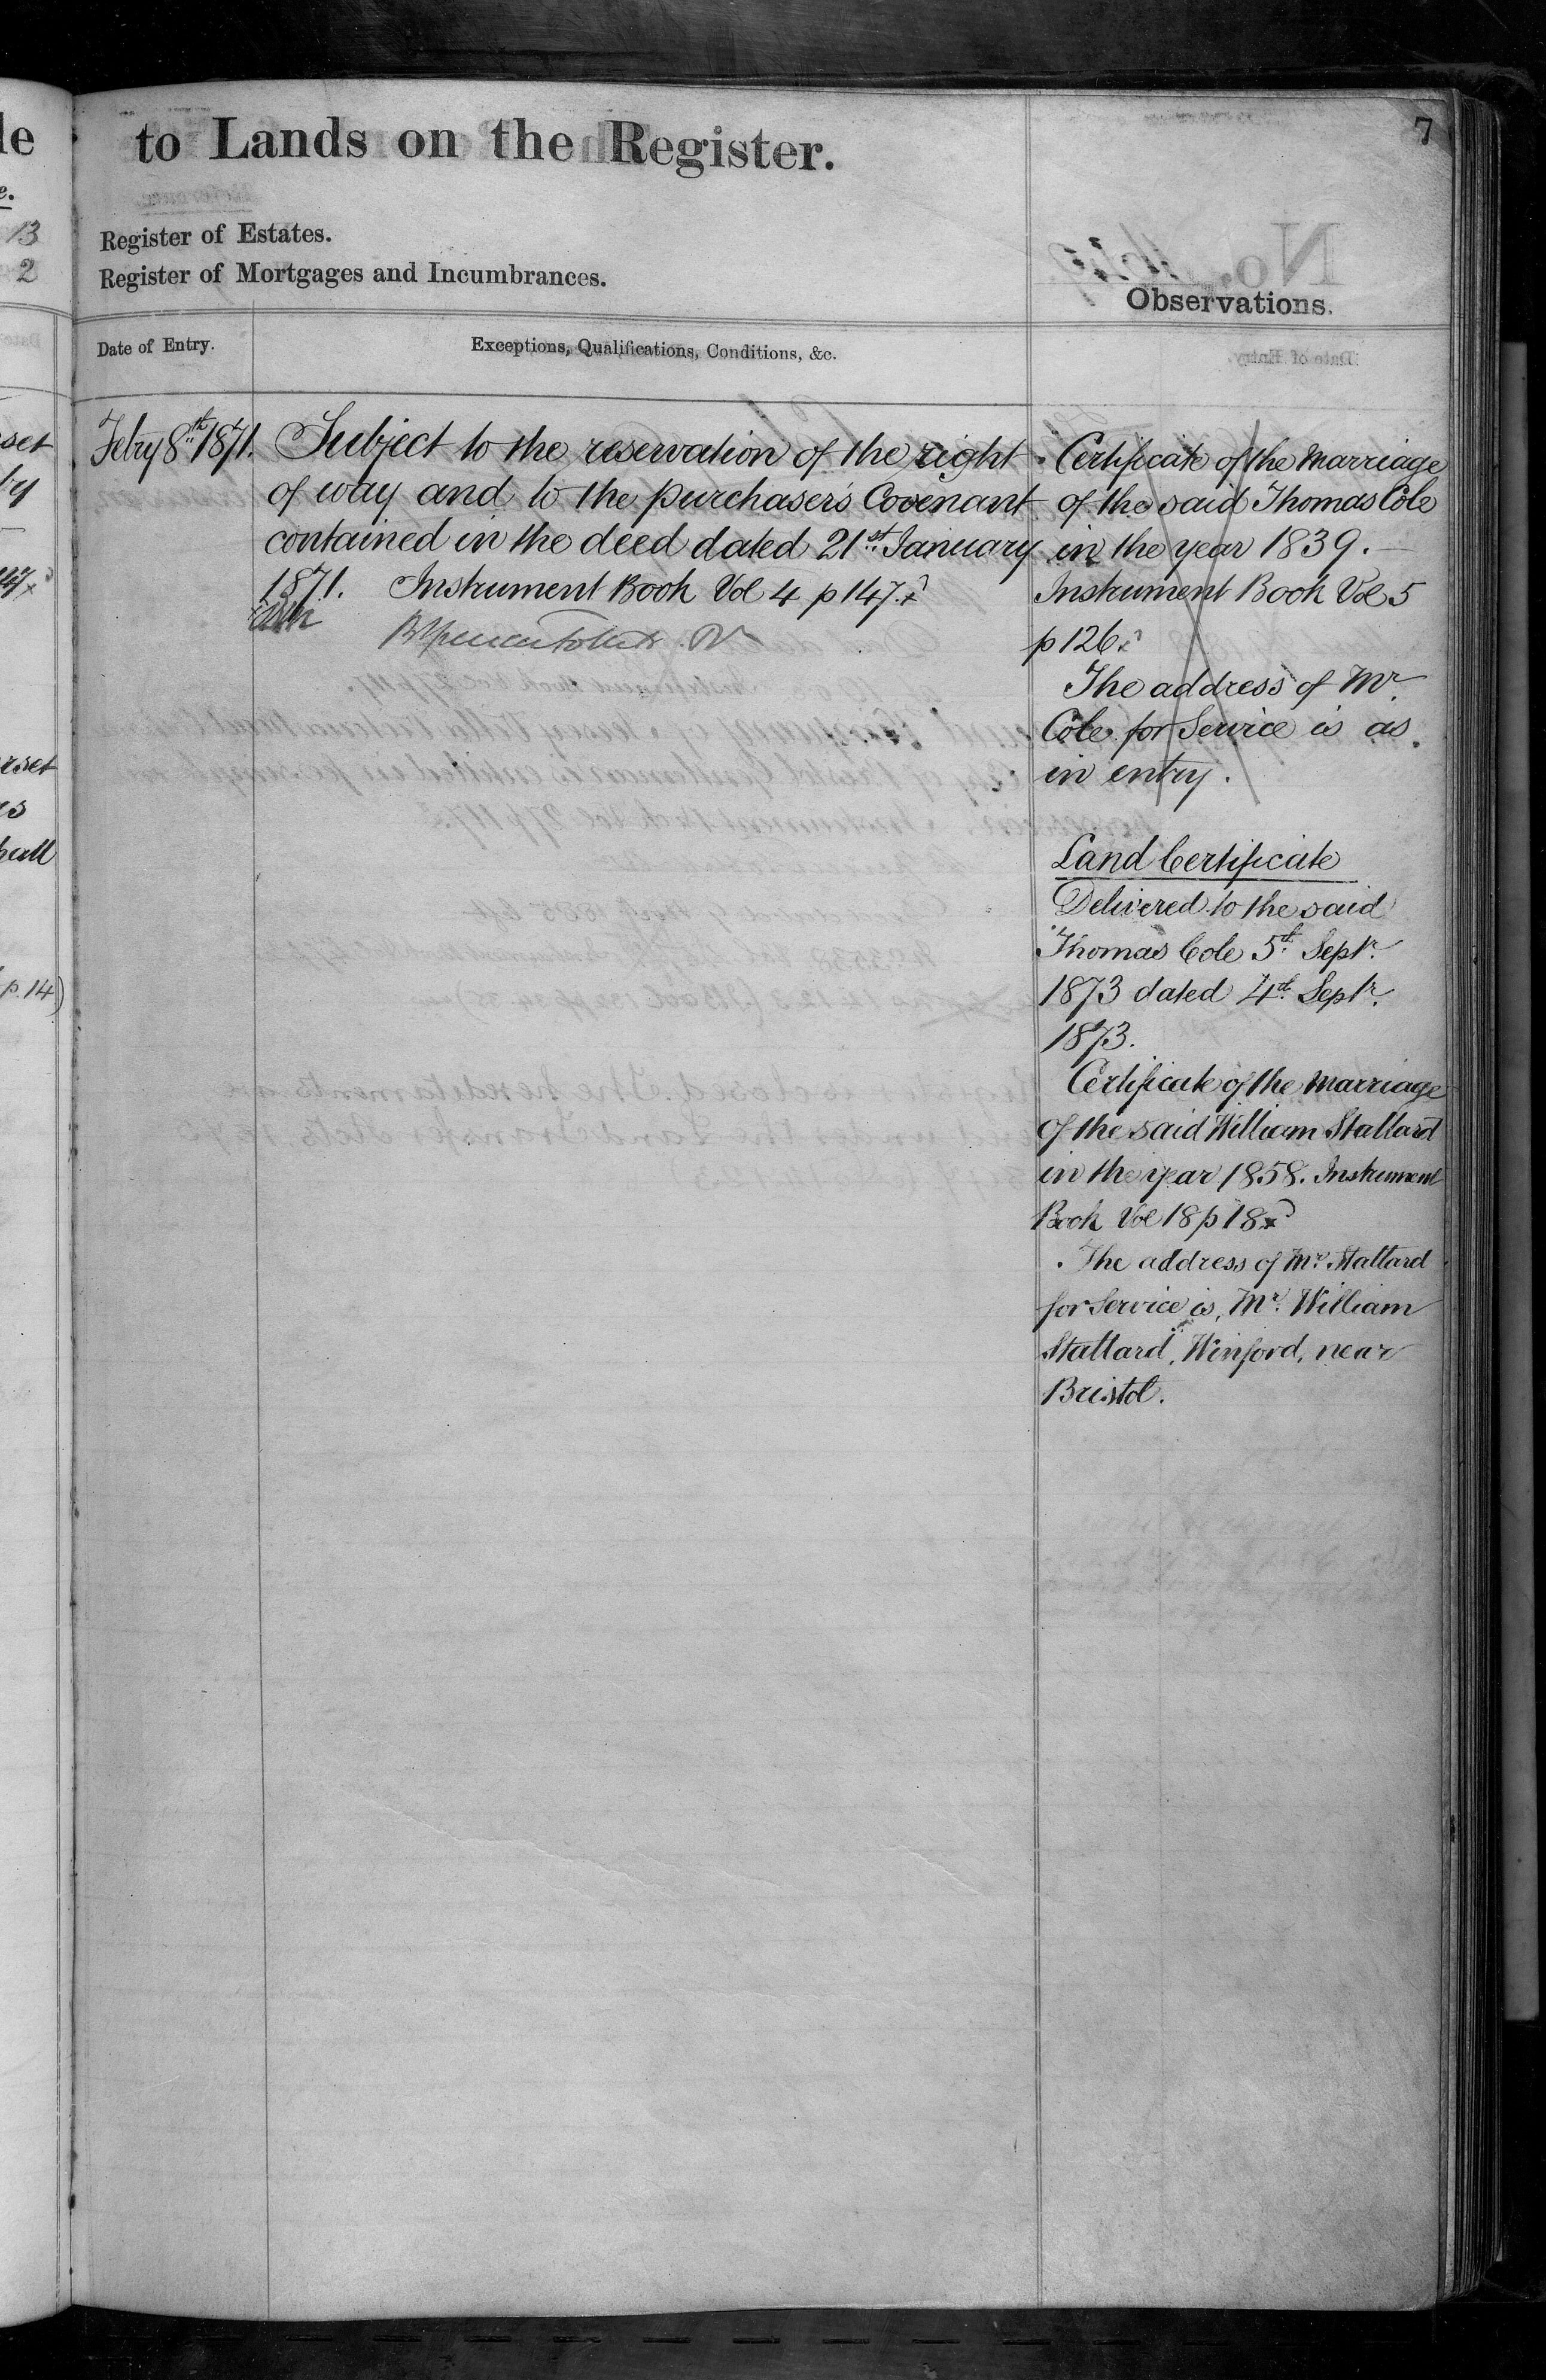 to Lands on the Register.
7
Register of Estates.
Register of Mortgages and Incumbrances.
Observations.
Date of Entry.
Exceptions, Qualifications, Conditions, &c.
Febry 8th 1871.
Subject to the reservation of the right
of way and to the purchaser's Covenant
contained in the deed dated 21st January
1871. Instrument Book Vol 4 p 147.
Certificate of the Marriage
of the said Thomas Cole
in the year 1839.
Instrument Book Vol 5
p 126
The address of Mr.
Cole for Service is as
in entry.
Land Certificate
Delivered to the said
Thomas Cole 5th Septr.
1873 dated 4th Septr.
1873.
Certificate of the Marriage
of the said William Stallard
in the year 1858. Instrument
Book Vol 18 p 18
The address of Mr. Stallard
for Service is, Mr. William
Stallard, Winford, near
Bristol.
le
e.
13
2
set
by
147
rset
es
hall
p. 14)